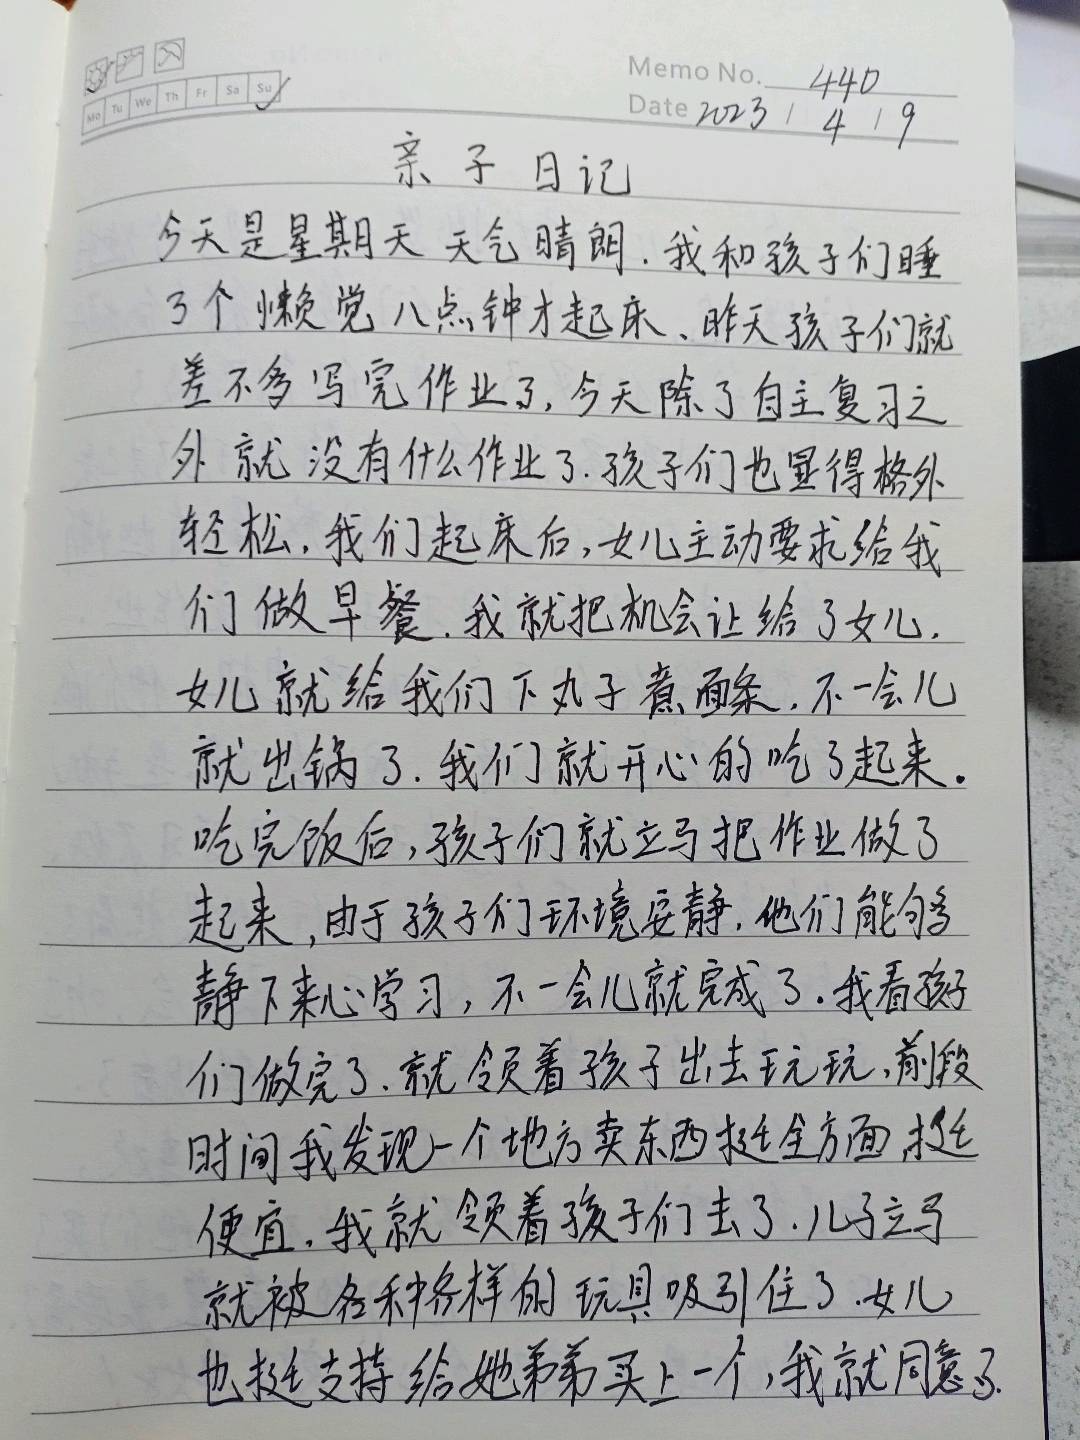 Memo No. 440
Mo Tu We Th Fr Sa Su
Date 2023 / 4 / 9
亲子日记
今天是星期天 天气晴朗.我和孩子们睡
了个懒觉 八点钟才起床、昨天孩子们就
差不多写完作业了,今天除了自主复习之
外就没有什么作业了.孩子们也显得格外
轻松.我们起床后,女儿主动要求给我
们做早餐.我就把机会让给了女儿.
女儿就给我们下丸子煮面条.不一会儿
就出锅了.我们就开心的吃了起来。
吃完饭后,孩子们就立马把作业做了
起来,由于孩子们环境安静.他们能够
静下来心学习,不一会儿就完成了.我看孩子
们做完了.就领着孩子出去玩玩、前段
时间我发现一个地方卖东西挺全方面,挺
便宜.我就领着孩子们去了.儿子立马
就被各种各样的玩具吸引住了.女儿
也挺支持给她弟弟买上一个,我就同意了.